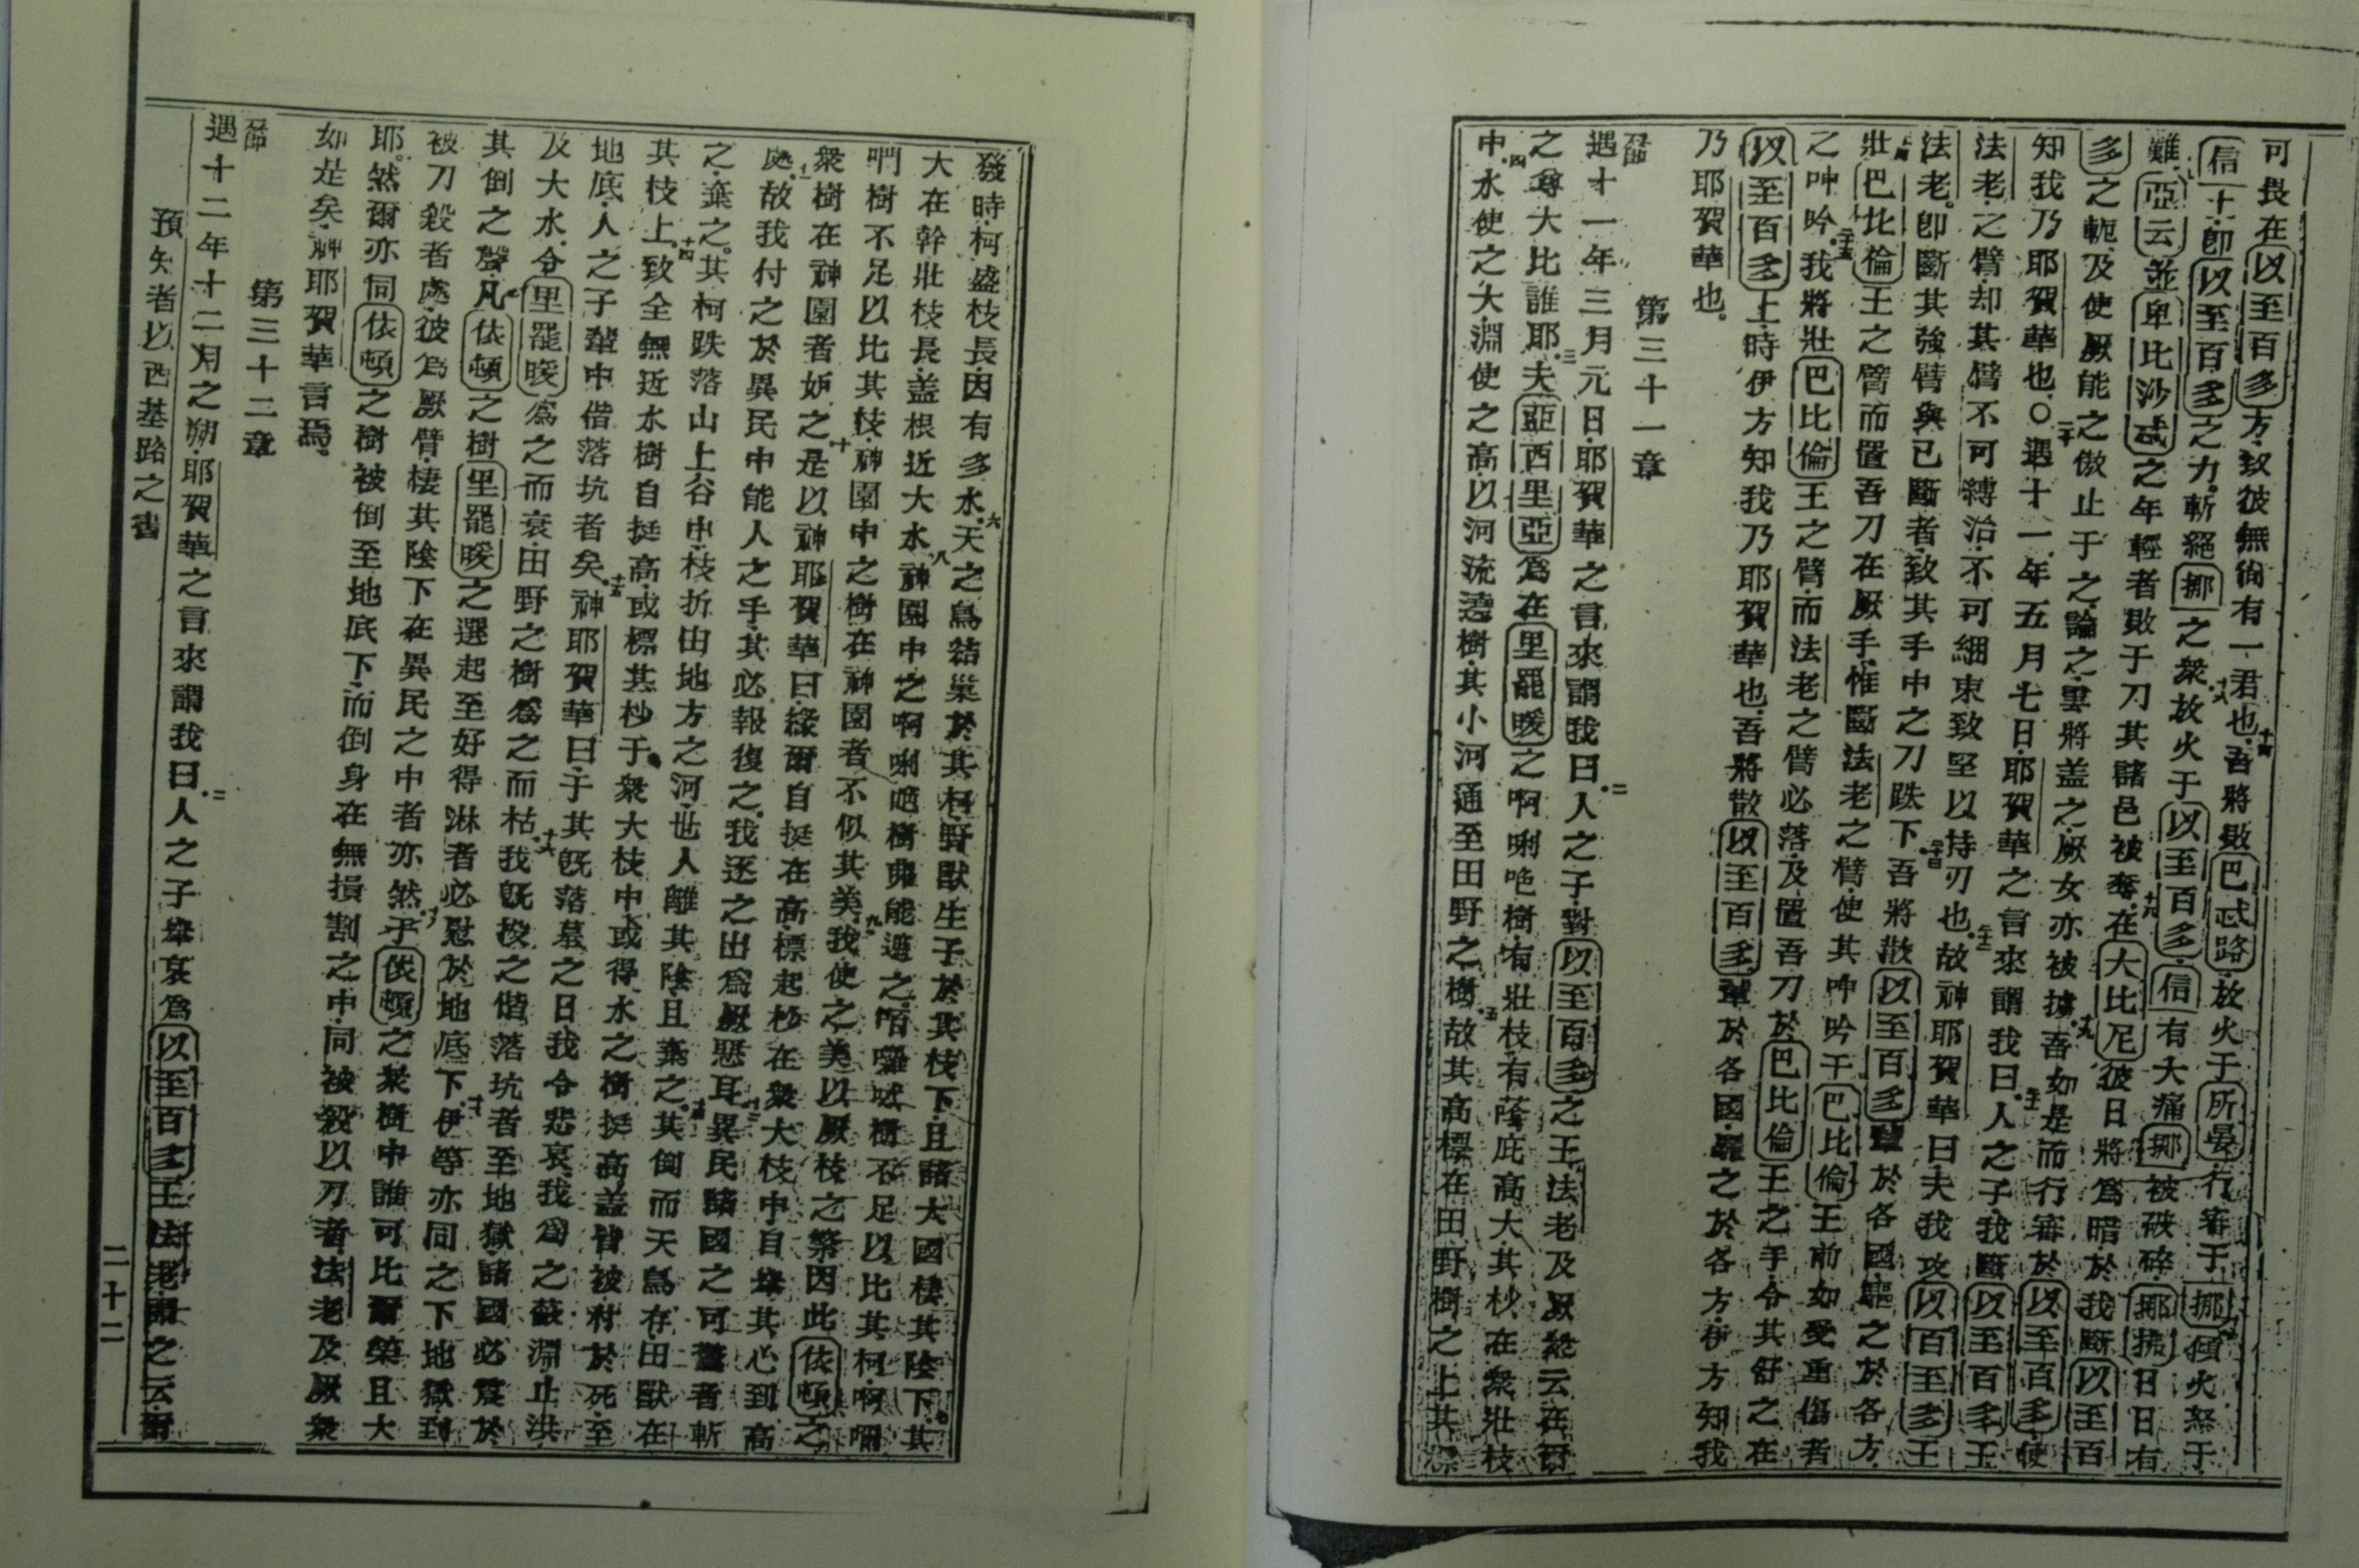 可畏在以至百多方致彼無尙有一君也十四吾將敗巴忒路放火于所晏行審于挪傾火怒于
信十卽以至百多之力斬絕挪之衆十六放火于以至百多信有大痛挪被破碎挪拂日日有
難亞云並卑比沙忒之年輕者敗于刀其諸邑被奪在大比尼彼日將爲暗於我斷以至百
多之軛及使厥能之傲止于之論之雲將盖之厥女亦被擄十九吾如是而行審於以至百多使
知我乃耶賀華也○二十遇十一年五月七日耶賀華之言來謂我曰人之子我斷以至百多王
法老之臂却其臂不可縛治不可細束致堅以持刃也故神耶賀華曰夫我攻以百至多王
法老卽斷其強臂與已斷者致其手中之刀跌下吾將散以至百多輩於各國驅之於各方
壯巴比倫王之臂而置吾刀在厥手惟斷法老之臂使其呻吟于巴比倫王前如受重傷者
之呻吟二十五我將壯巴比倫王之臂而法老之臂必落及置吾刀於巴比倫王之手令其舒之在
以至百多上時伊方知我乃耶賀華也吾將散以至百多輩於各國驅之於各方伊方知我
乃耶賀華也
第三十一章
節遇十一年三月元日耶賀華之言來謂我曰二人之子對以至百多之王法老及厥衆云在爾
之尊大比誰耶三夫亞西里亞爲在里罷暖之啊唎吔樹有壯枝有蔭庇高大其杪在衆壯枝
中四水使之大淵使之高以河流遶樹其小河通至田野之樹五故其高標在田野樹之上其
發時柯盛枝長因有多水六天之鳥結巢於其柯野獸生子於其枝下且諸大國棲其陰下其
大在幹壯枝長盖根近大水八神園中之啊唎吔樹弗能遮之樹不足以比其柯啊囒
呬樹不足以比其枝神園中之樹在神園者不似其美九我使之美以厥枝之繁因此依頓之
衆樹在神園者妒之十是以神耶賀華曰緣爾自挺在高標起杪在衆大枝中自舉其心到高
處十一故我付之於異民中能人之手其必報復之我逐之出爲厥惡耳異民諸國之可驚者斬
之棄之其柯跌落山上谷中枝折由地方之河世人離其陰且棄之其倒而天鳥存田獸在
其枝上十四致全無近水樹自挺高或標其杪于衆大枝中或得水之樹挺高盖皆被付於死至
地底人之子輩中偕落坑者矣十五神耶賀華曰于其旣落墓之日我令悲哀我爲之蔽淵止洪
及大水令里罷暖爲之而衰田野之樹爲之而枯十六我旣投之偕落坑者至地獄諸國必震於
其倒之聲凡依頓之樹里罷暖之選起至好得淋者必慰於地底下十七伊等亦同之下地獄到
被刀殺者處彼爲厥臂棲其陰下在異民之中者亦然十八于依頓之衆樹中誰可比爾榮且大
耶然爾亦同依頓之樹被倒至地底下而倒身在無損割之中同被殺以刀者法老及厥衆
如是矣神耶賀華言焉
第三十二章
節遇十二年十二月之朔耶賀華之言來謂我曰二人之子舉哀爲以至百多王法老謂之云爾
預知者以西基路之書
二十二